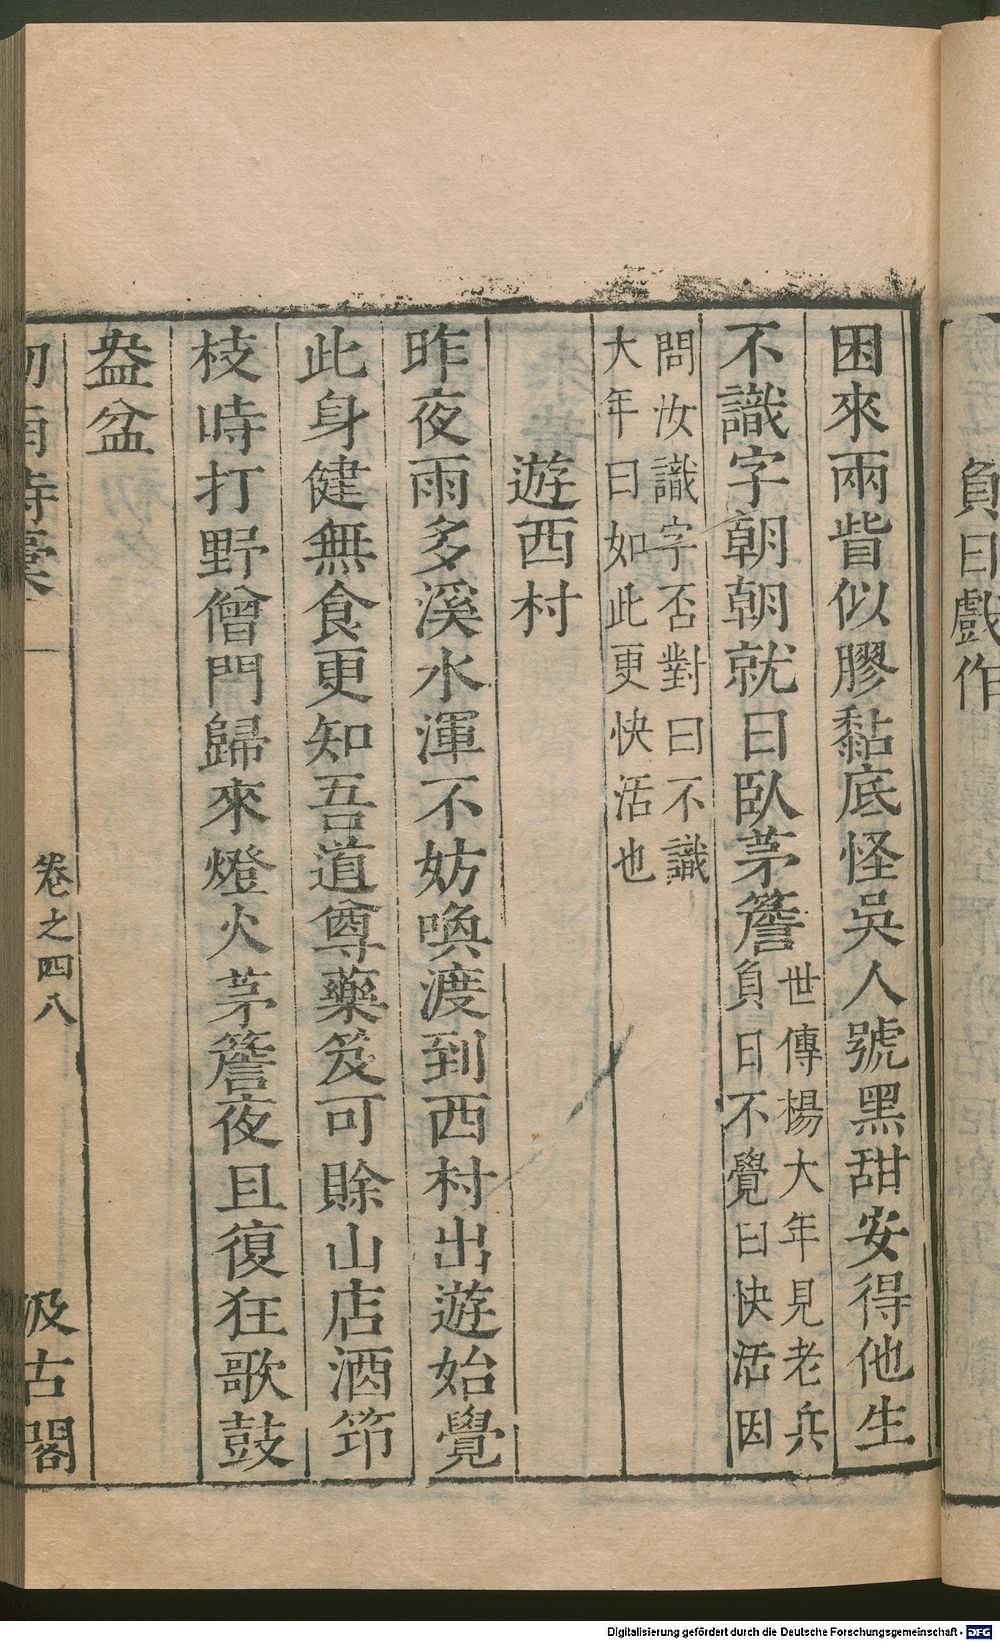 負日戲作
困來兩眥似膠黏底怪吳人號黑甜安得他生
不識字朝朝就日臥茅簷世傳楊大年見老兵
負日不覺曰快活因
問汝識字否對曰不識
大年曰如此更快活也
遊西村
昨夜雨多溪水渾不妨喚渡到西村出遊始覺
此身健無食更知吾道尊藥笈可賒山店酒笻
枝時打野僧門歸來燈火茅簷夜且復狂歌鼓
盎盆
劒南詩稾 卷之四 八 汲古閣
Digitalisierung gefördert durch die Deutsche Forschungsgemeinschaft - DFG